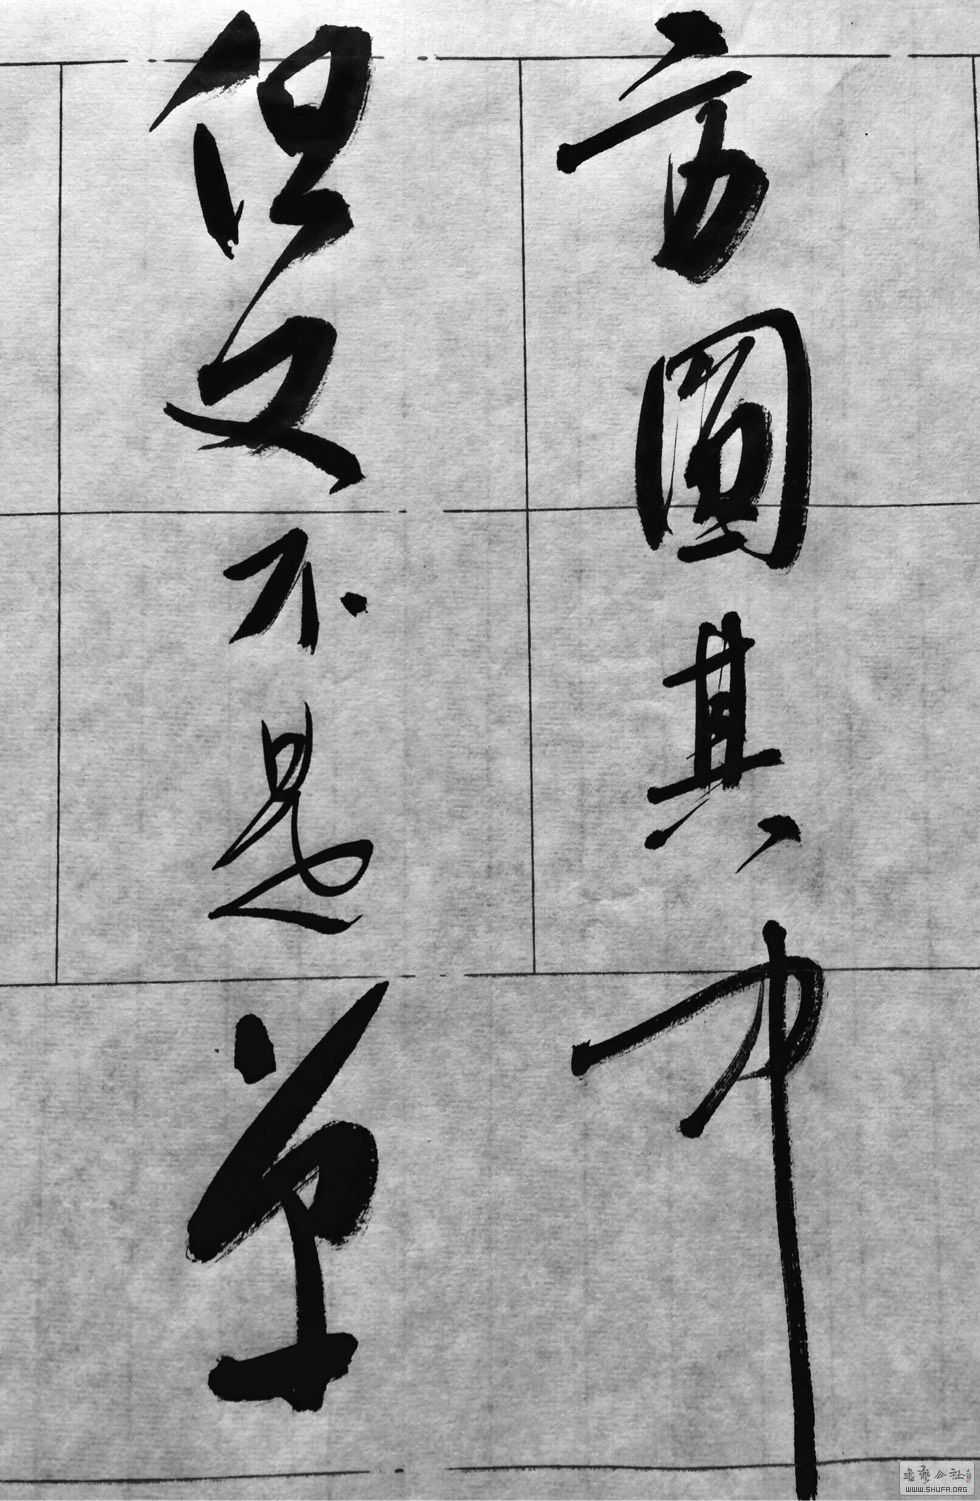 方圓其中
但又不是單
書藝公社
WWW.SHUFA.ORG